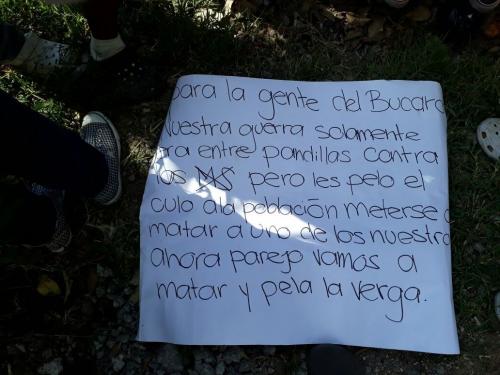 para la gente del Bucaro
Nuestra guerra solamente
era entre pandillas contra
los MS pero les pelo el
culo ala población meterse a
matar a uno de los nuestro
ahora parejo vamos a
matar y pela la verga.